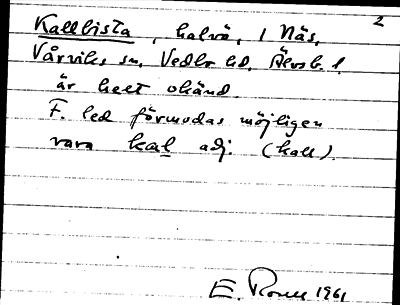 2
Kallbista, halvö, i Näs,
Vårviks sn, Vedbo hd, Älvsb. l.
är helt okänd.
F. led förmodas möjligen
vara kal adj. (kall).
E. 1961